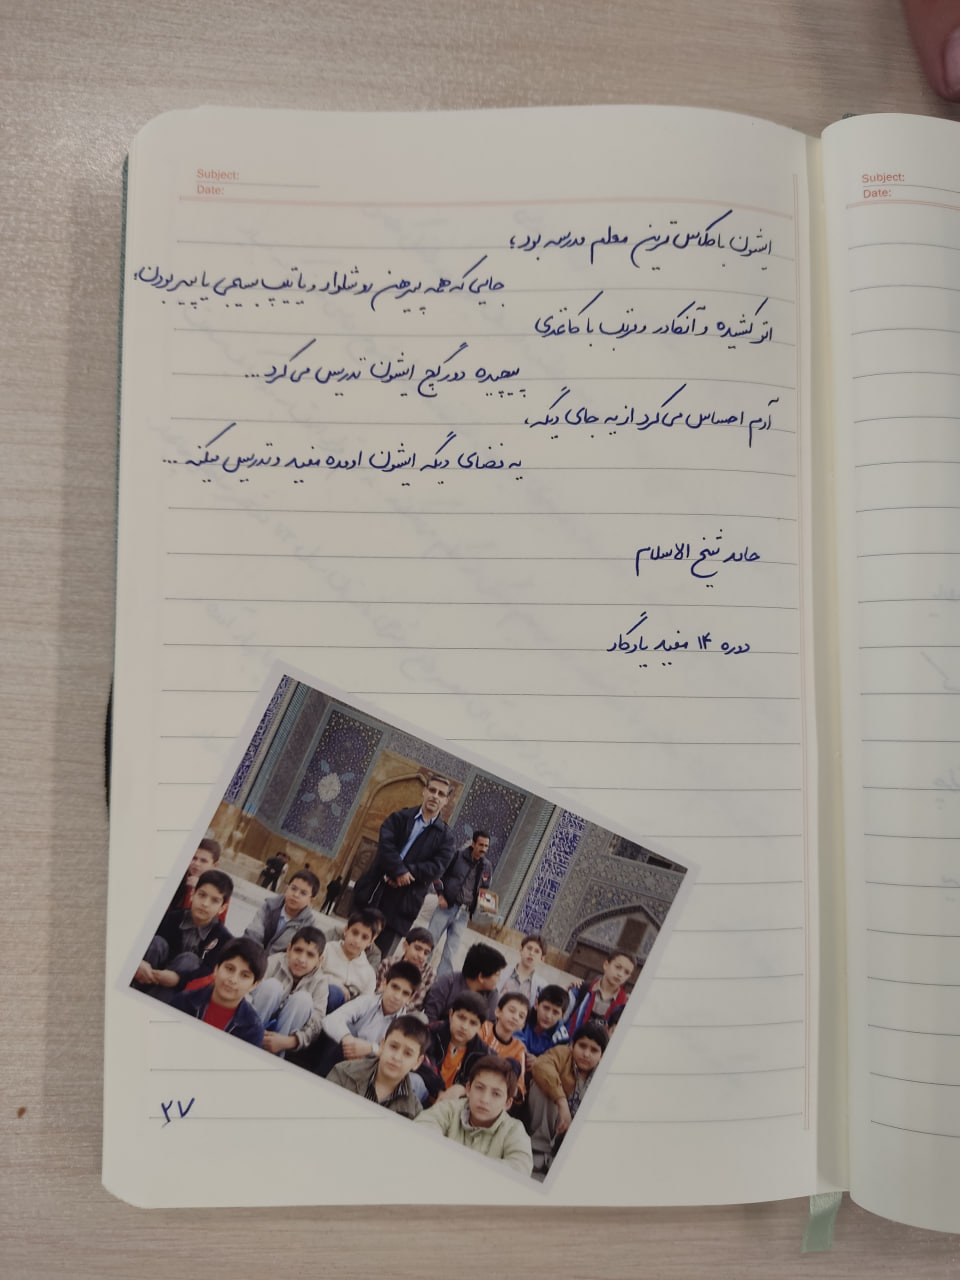 Subject:
Date:
ایشون باکلاس ترین معلم مدرسه بود؛
جایی که همه پیرهن رو شلوار و یا تیپ بسیجی یا پیر بودن؛
اتو کشیده و آنکادر و مرتب با کاغذی
پیچیده دور گچ ایشون تدریس می کرد ...
آدم احساس می کرد از یه جای دیگه،
یه فضای دیگه ایشون اومده مفید و تدریس میکنه ...
حامد شیخ الاسلام
دوره ۱۴ مفید یادگار
۲۷
Subject:
Date: